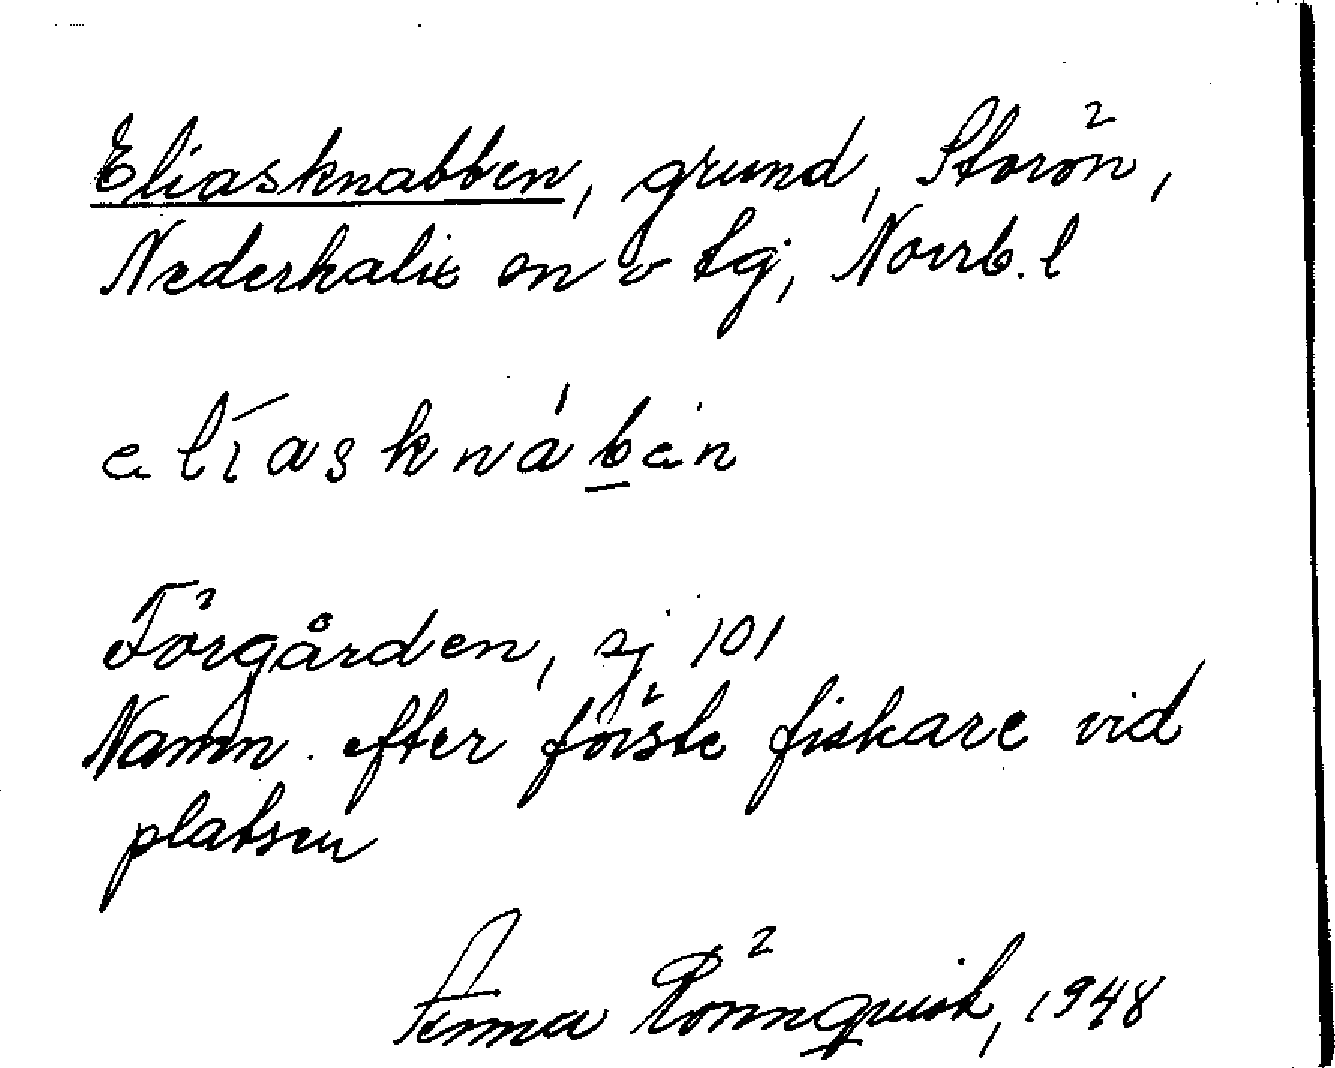 Eliasknabben, grund, Storön,
Nederkalix sn v tg, Norrb. l
elīasknábėn
Förgården, sj 101
Namn. efter förste fiskare vid
platsen
Anna Rönnquist, 1948